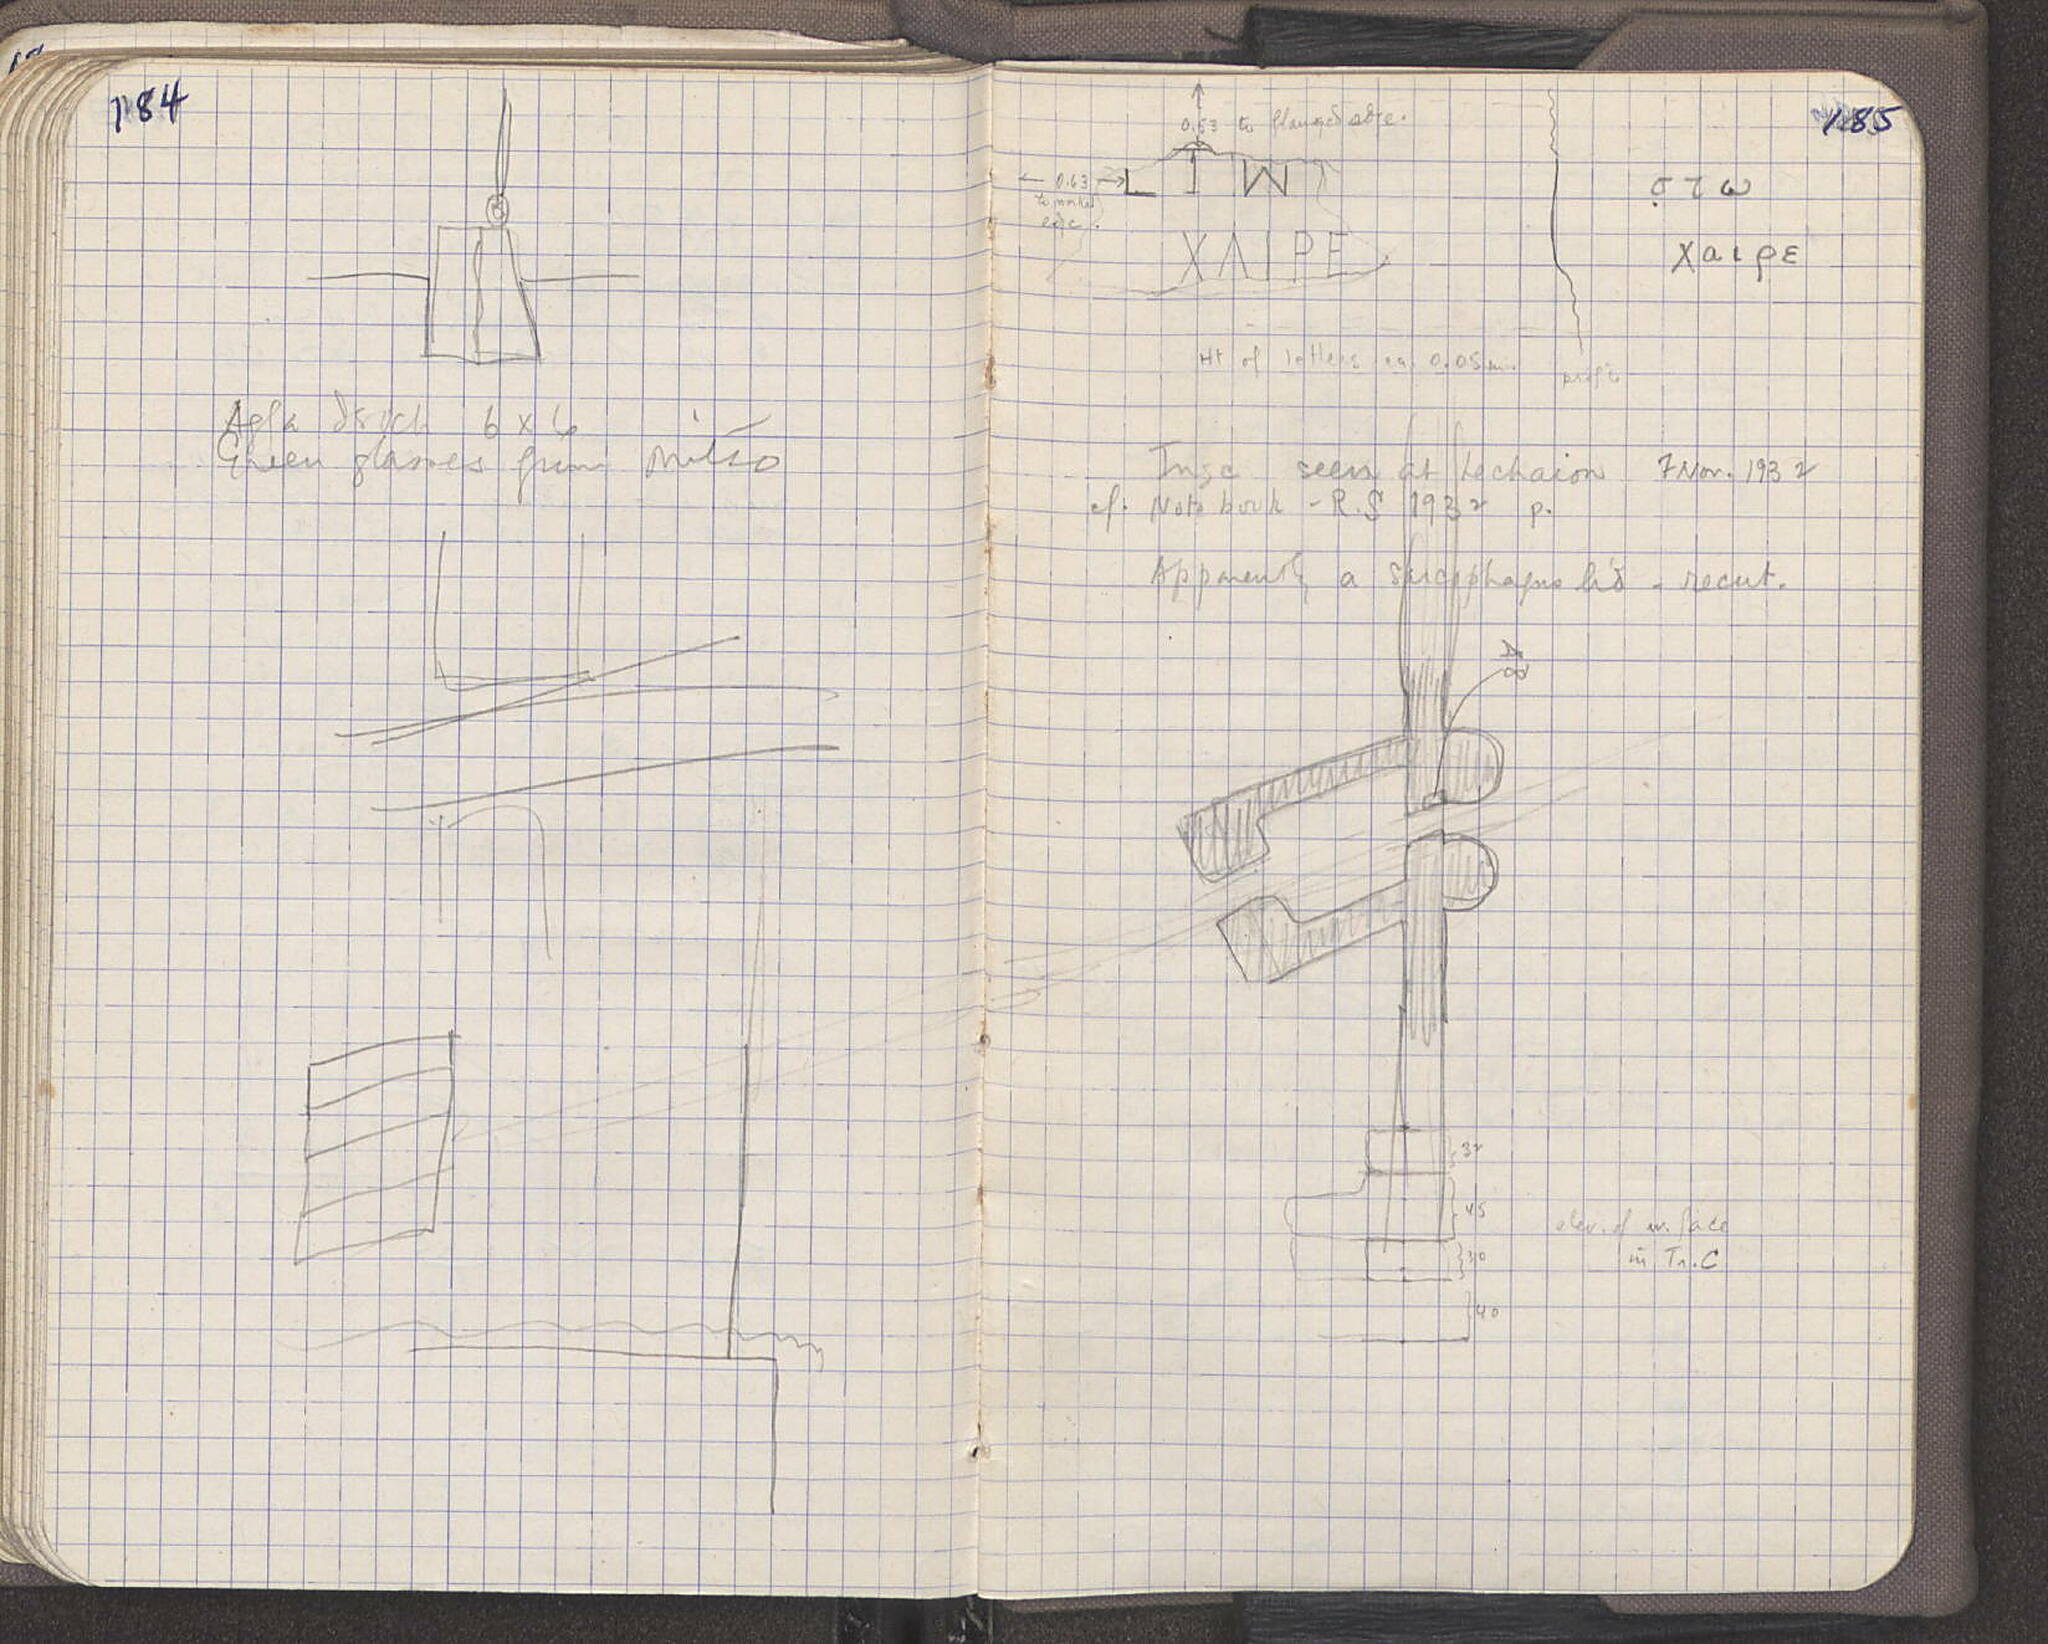 184
Agfa 6 x 6
Green glasses from
185
0.53 to flanged edge.
← 0.63 →
to worked
edge.
ΧΑΙΡΕ
χαιρε
Ht of letters ca. 0.05 m.
profile
Insc seen at Lechaion 7 Nov. 1932
cf. Note book - R.S 1932 p.
Apparently a sarcophagus lid - recut.
32
45
30
40
elev. of w. face
in Tr. C